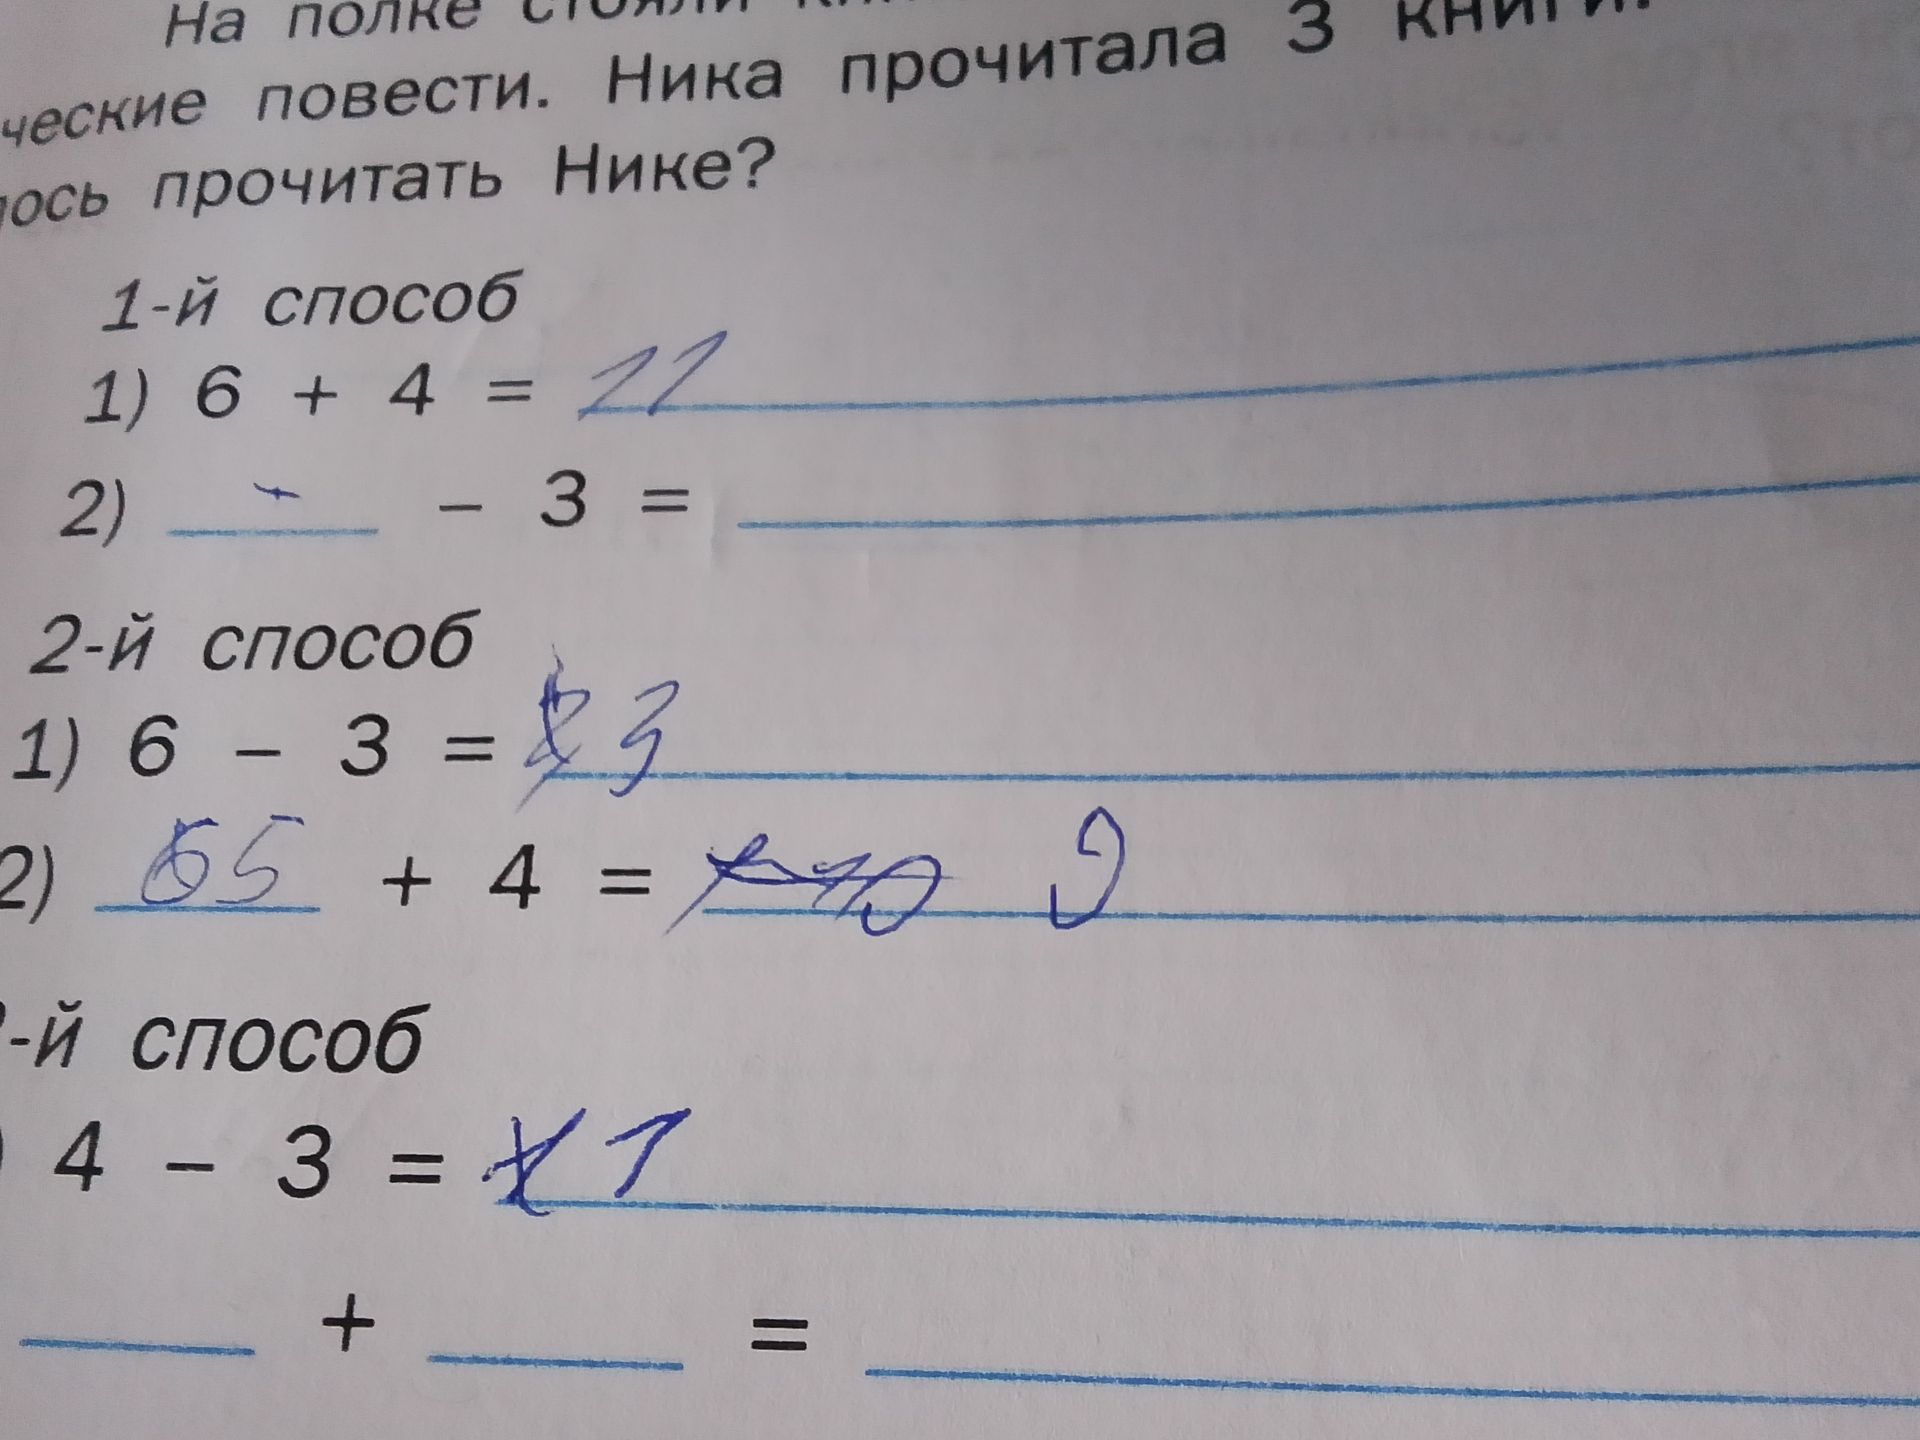 На полке стояли
ческие повести. Ника прочитала 3 книги.
лось прочитать Нике?
1-й способ
1) 6 + 4 = 11
2) - 3 =
2-й способ
1) 6 - 3 = 3
2) 65 + 4 = 9
-й способ
) 4 - 3 = 1
+ =